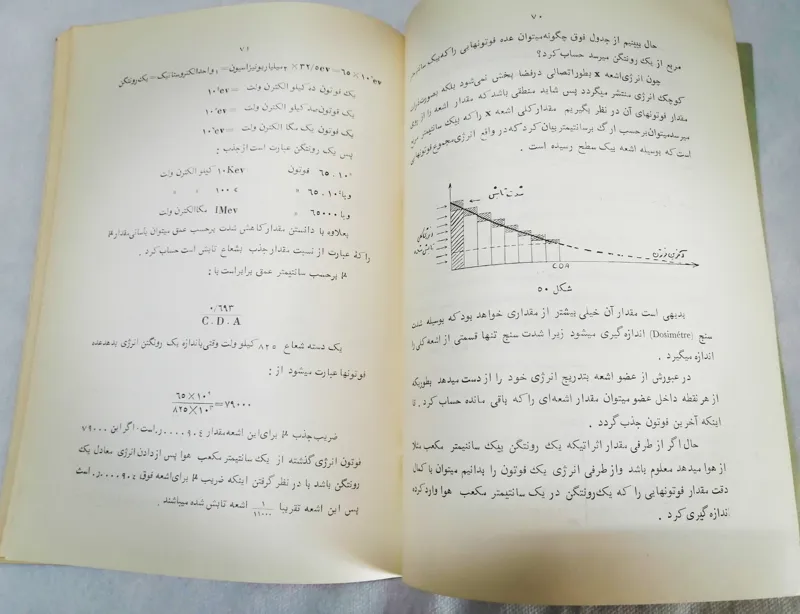 ۷۰
حال ببینیم از جدول فوق چگونه میتوان عده فوتونهایی را که بیک سانتیمتر
مربع از یک رونتگن میرسد حساب کرد؟
چون انرژی اشعه x بطور اتصالی درفضا پخش نمی‌شود بلکه بصورت ذرات
کوچک انرژی منتشر میگردد پس شاید منطقی باشد که مقدار اشعه را از روی
مقدار فوتونهای آن در نظر بگیریم مقدار کلی اشعه x را که بیک سانتیمتر مربع
میرسد میتوان برحسب ارگ برسانتیمتر بیان کرد که در واقع انرژی مجموع فوتونهایی
است که بوسیله اشعه بیک سطح رسیده است .
شدت تابش
C.D.A
شکل ۵۰
بدیهی است مقدار آن خیلی بیشتر از مقداری خواهد بود که بوسیله شدت
سنج (Dosimètre) اندازه گیری میشود زیرا شدت سنج تنها قسمتی از اشعه کلی را
اندازه میگیرد .
در عبورش از عضو اشعه بتدریج انرژی خود را از دست میدهد بطوریکه
از هر نقطه داخل عضو میتوان مقدار اشعه‌ای را که باقی مانده حساب کرد . تا
اینکه آخرین فوتون جذب گردد .
حال اگر از طرفی مقدار اثراتیکه یک رونتگن بیک سانتیمتر مکعب مثلا
از هوا میدهد معلوم باشد و از طرفی انرژی یک فوتون را بدانیم میتوان با کمال
دقت مقدار فوتونهایی را که یک رونتگن در یک سانتیمتر مکعب هوا وارد کرده
اندازه گیری کرد .
۷۱
یک رونتگن=یک واحد الکترومتاتیک=۲ میلیارد یونیزاسیون × ۳۲/۵ev=۶۵×۱۰⁹ev
یک فوتون ده کیلو الکترن ولت =۱۰⁴ev
یک فوتون صد کیلو الکترن ولت =۱۰⁵ev
یک فوتون یک مگا الکترن ولت =۱۰⁶ev
پس یک رونتگن عبارت است از جذب :
۶۵ . ۱۰⁵ فوتون ۱۰Kev کیلو الکترن ولت
ویا ۶۵ . ۱۰⁴ » ۱۰۰ » »
ویا ۶۵۰۰۰ » 1Mev مگا الکترن ولت
بعلاوه با دانستن مقدار کاهش شدت برحسب عمق میتوان بآسانی مقدار μ
را که عبارت از نسبت مقدار جذب بشعاع تابش است حساب کرد .
μ برحسب سانتیمتر عمق برابر است با :
۰/۶۹۳
C . D . A
یک دسته شعاع ۸۲۵ کیلو ولت وقتی باندازه یک رونتگن انرژی بدهد عده
فوتونها عبارت میشود از :
۶۵×۱۰⁹
۸۲۵×۱۰³ =۷۹۰۰۰
ضریب جذب μ برای این اشعه مقدار ۰٫۰۰۰۰۹۰۴ است . اگر این ۷۹۰۰۰
فوتون انرژی گذشته از یک سانتیمتر مکعب هوا پس از دادن انرژی معادل یک
رونتگن باشد با در نظر گرفتن اینکه ضریب μ برای اشعه فوق ۰٫۰۰۰۰۹۰۴ است
پس این اشعه تقریبا ۱/۱۱۰۰۰ اشعه تابش شده میباشند .